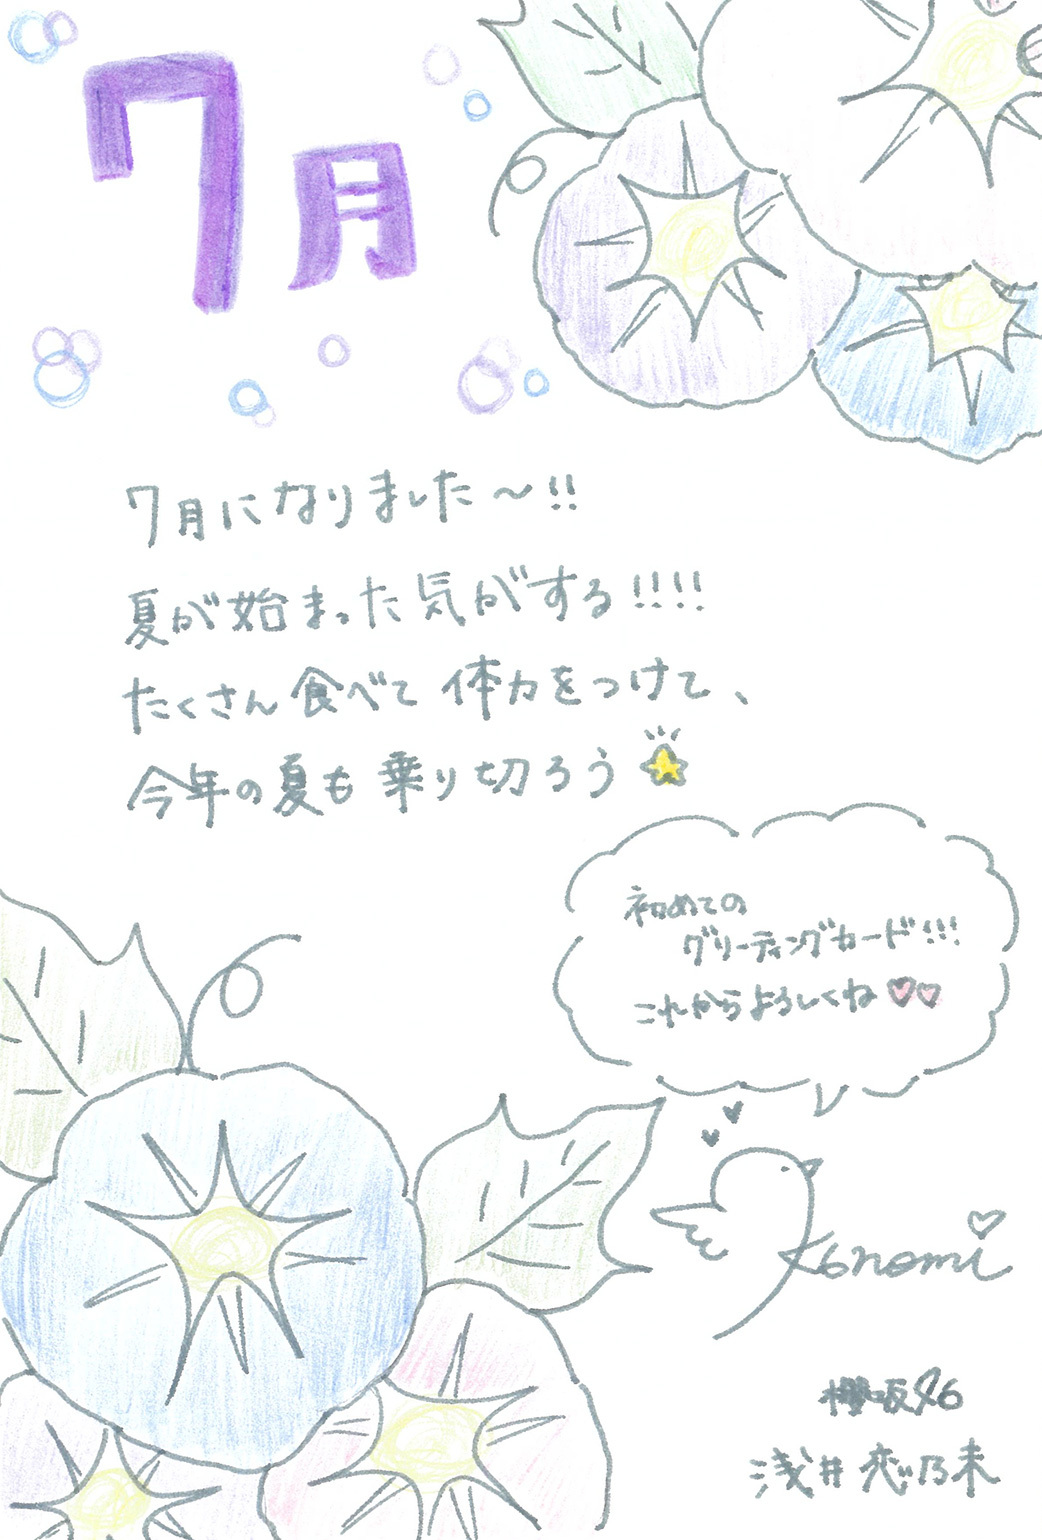 7月
7月になりました〜!!
夏が始まった気がする!!!!
たくさん食べて体力をつけて、
今年の夏も乗り切ろう
初めての
グリーティングカード!!!
これからよろしくね
Konomi
櫻坂46
浅井恋乃未